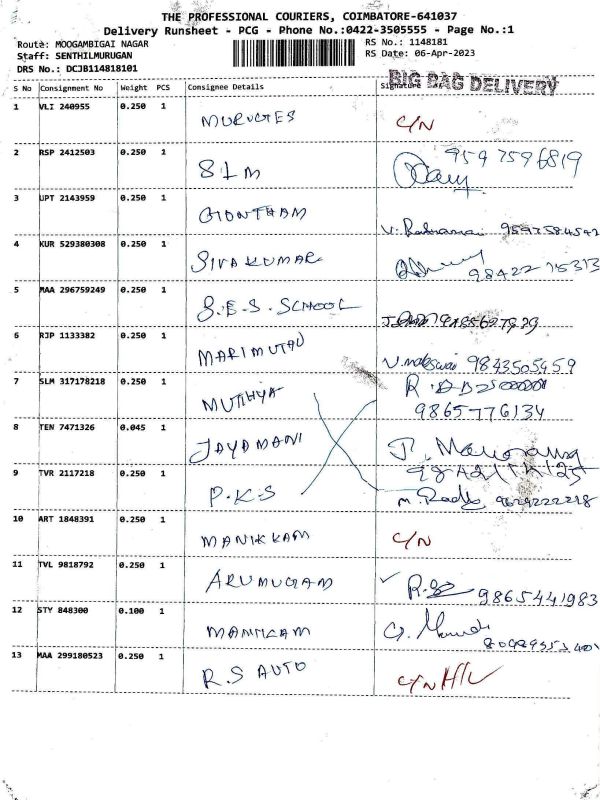 THE PROFESSIONAL COURIERS, COIMBATORE-641037
Delivery Runsheet - PCG - Phone No.:0422-3505555 - Page No.:1
Route: MOOGAMBIGAI NAGAR RS No.: 1148181
Staff: SENTHILMURUGAN RS Date: 06-Apr-2023
DRS No.: DCJB114818101
BIG BAG DELIVERY
S No Consignment No Weight PCS Consignee Details Signature
1 VLI 240955 0.250 1 MURUGES C/N
2 RSP 2412503 0.250 1 9597596819
SLM
3 UPT 2143959 0.250 1 GONTHAM
4 KUR 529380308 0.250 1 SIVAKUMAR 98422 15313
5 MAA 296759249 0.250 1 S.E.S. SCHOOL
6 RJP 1133382 0.250 1 MARIMUTHU 9843505459
7 SLM 317178218 0.250 1 MUTHYA 9865776134
8 TEN 7471326 0.045 1 JAYAMANI
9 TVR 2117218 0.250 1 P.K.S 9629222218
10 ART 1848391 0.250 1 MANIKKAM C/N
11 TVL 9818792 0.250 1 ARUMUGAM 9865441983
12 STY 848300 0.100 1 MANIKAM
13 MAA 299180523 0.250 1 R.S AUTO C/N H/L